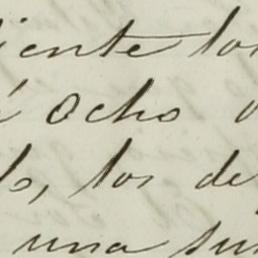 iente los
á Ocho
lo, los de
una su